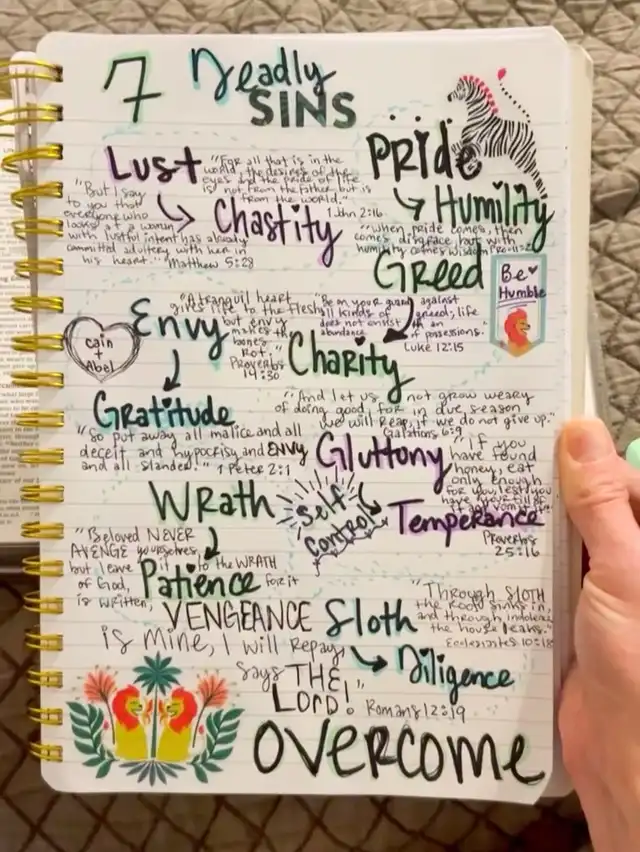 7 Deadly
SINS
Lust
"For all that is in the
world, the desires of the
eyes and the pride of life
is not from the father but is
from the world."
1 John 2:16
Chastity
"But I say
to you that
everyone who
looks at a woman
with lustful intent has already
committed adultery with her in
his heart." Matthew 5:28
Pride
Humility
"when pride comes, then
comes disgrace, but with
humility comes wisdom" Pro-11:2
Greed
Be
Humble
"Be on your guard against
all kinds of greed; life
does not consist in an
abundance of possessions."
Luke 12:15
Charity
"And let us not grow weary
of doing good, for in due season
we will Reap, if we do not give up."
Galatians 6:9
Envy
cain
+
Abel
"A tranquil heart
gives life to the flesh,
but envy
makes the
bones
Rot."
Proverbs
14:30
Gratitude
"So put away all malice and all
deceit and hypocrisy and ENVY
and all slander." 1 Peter 2:1
Gluttony
"If you
have found
honey, eat
only enough
for you, lest you
have your fill of
it and vomit it"
Proverbs
25:16
Self
Control
Temperance
Wrath
Patience
"Beloved NEVER
AVENGE yourselves,
but leave it to the WRATH
of God, for it
is written,
VENGEANCE
is mine, I will Repay,
says THE
LORD!"
Romans 12:19
Sloth
"Through SLOTH
the Roof sinks in,
and through indolence
the house leaks."
Ecclesiastes 10:18
Diligence
OVERCOME